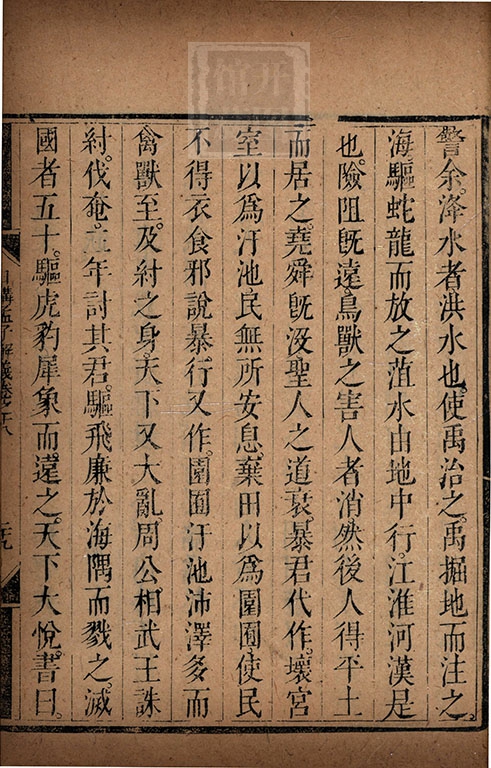 警余。洚水者洪水也。使禹治之。禹掘地而注之。
海驅蛇龍而放之菹水由地中行。江淮河漢是
也。險阻旣遠鳥獸之害人者消然後人得平土
而居之。堯舜旣沒聖人之道衰暴君代作。壞宮
室以爲汙池民無所安息棄田以爲園囿使民
不得衣食邪說暴行又作。園囿汙池沛澤多而
禽獸至。及紂之身。天下又大亂周公相武王誅
紂。伐奄。三年討其君。驅飛廉於海隅而戮之。滅
國者五十。驅虎豹犀象而遠之。天下大悅。書曰。
日講孟子解義卷十八